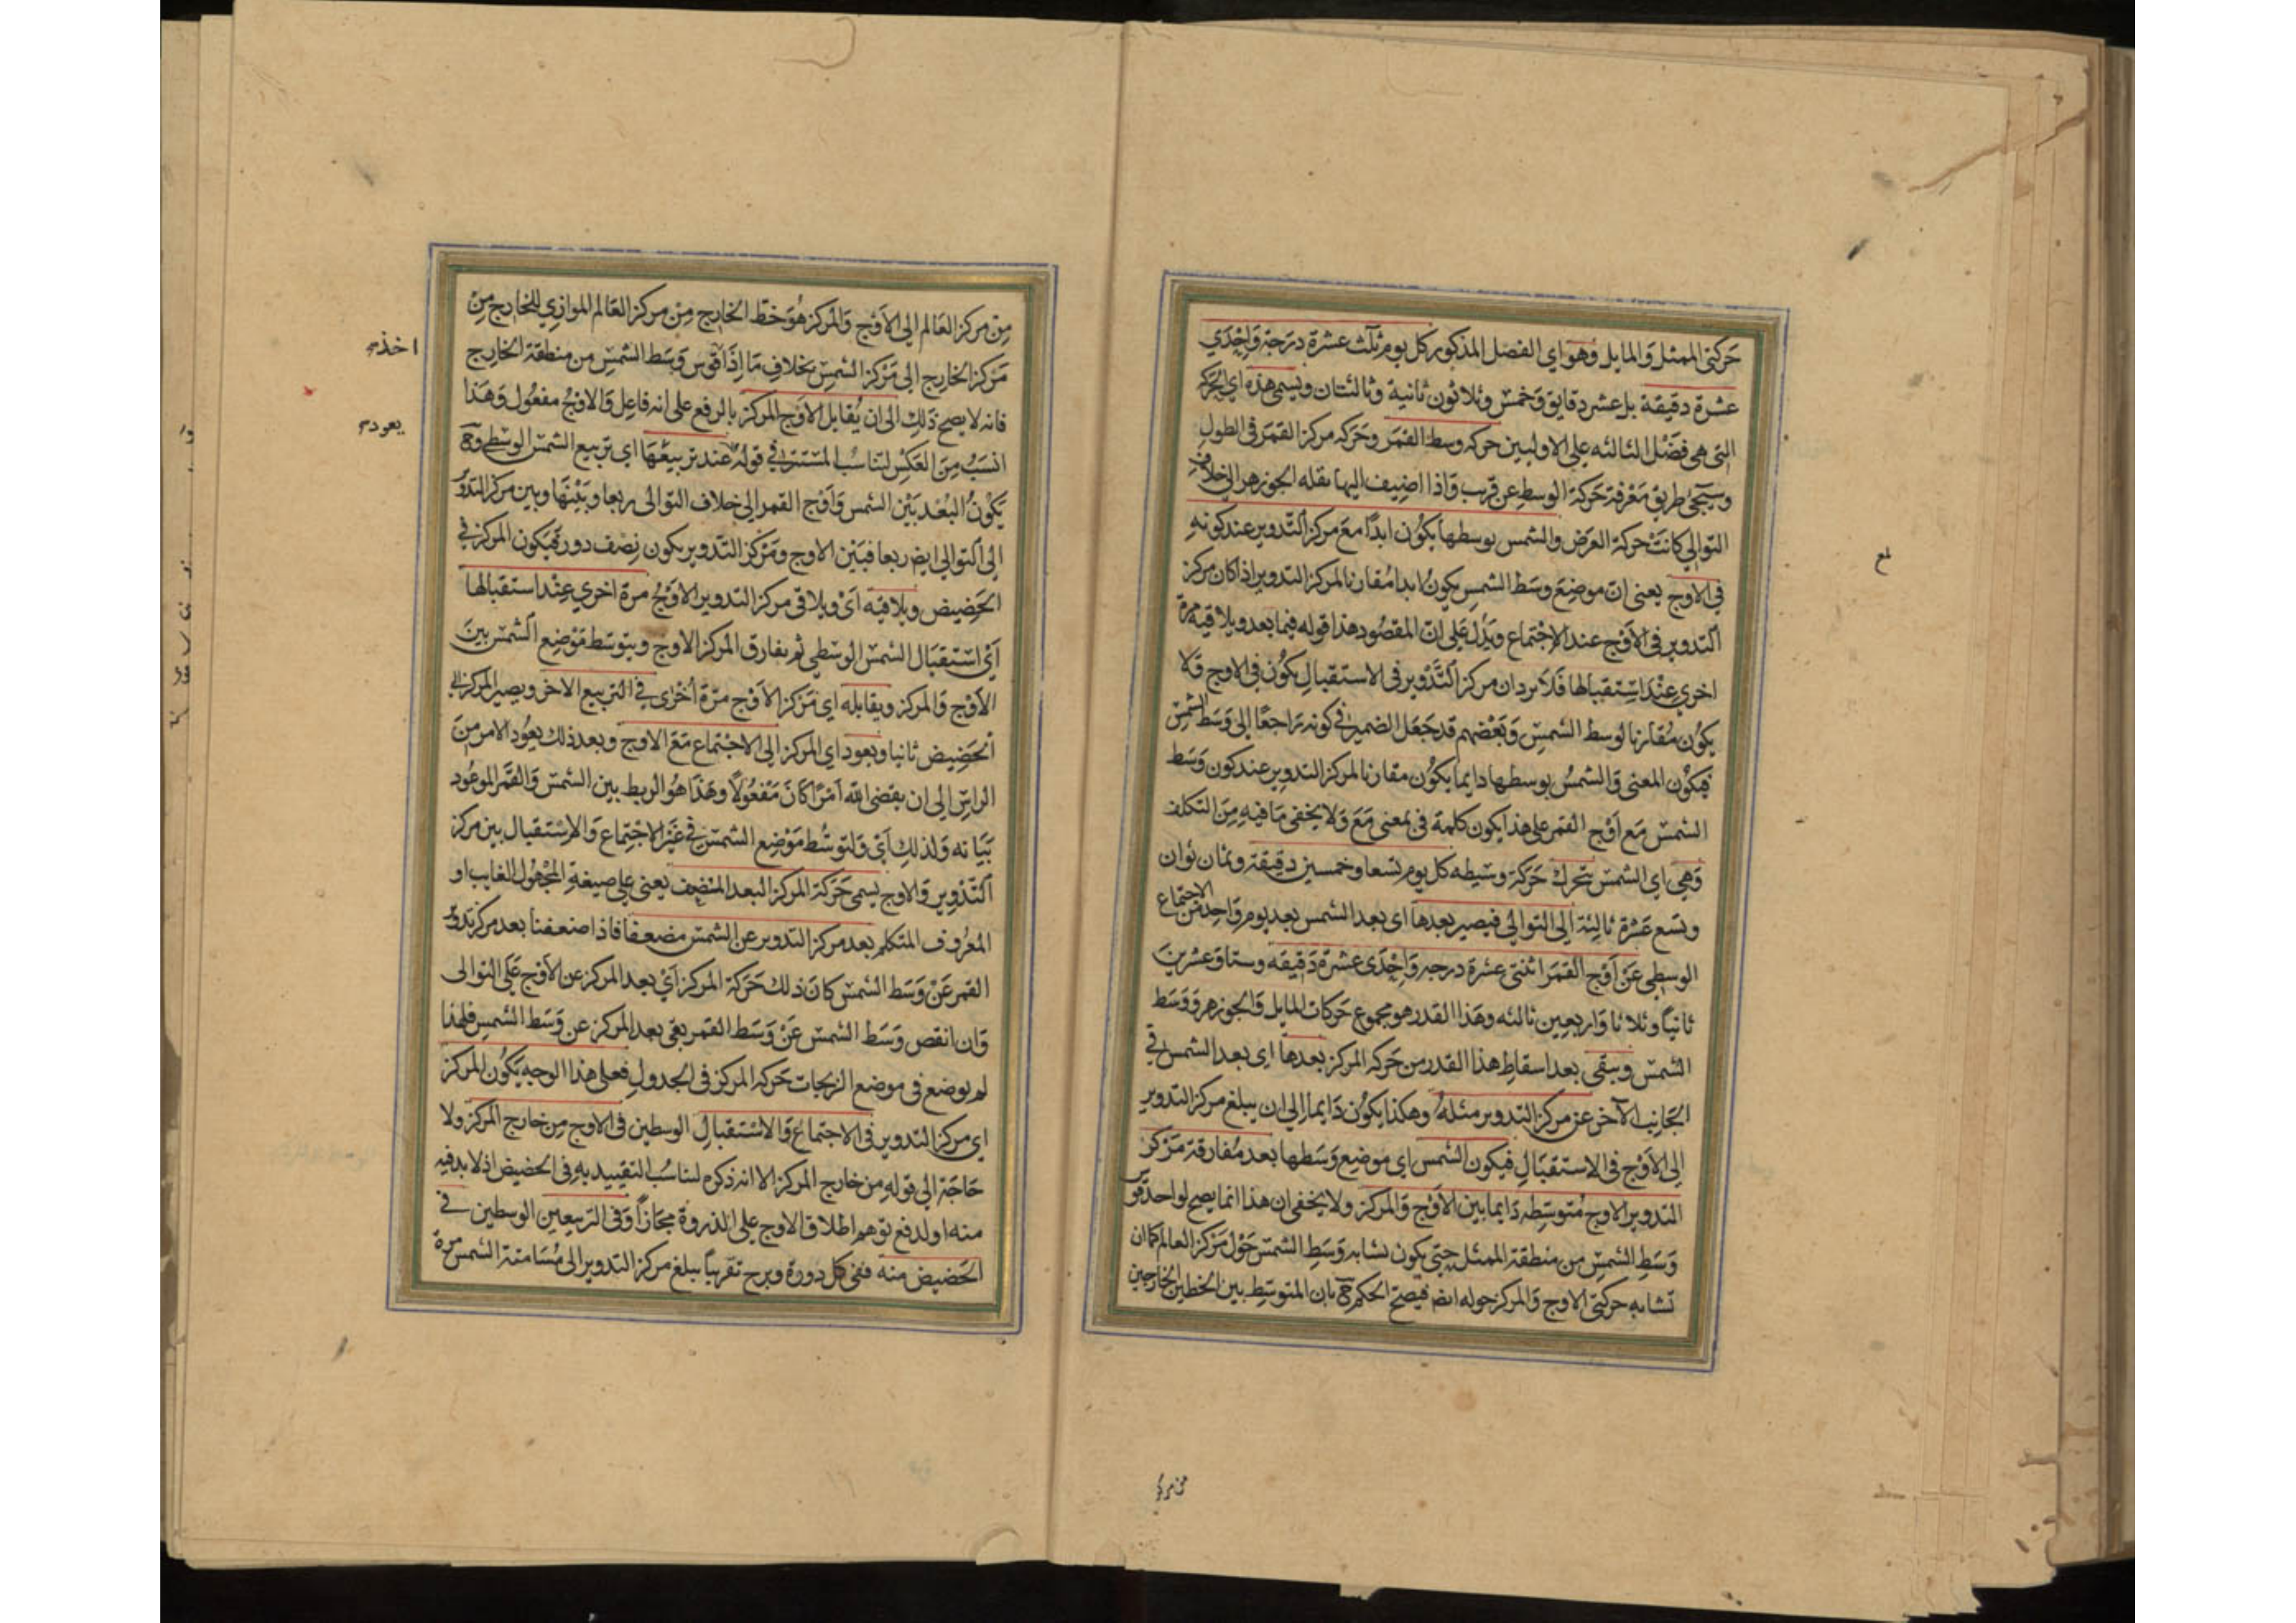 حركتي الممثل والمايل وهو اي الفضل المذكور كل يوم ثلث عشرة درجة واحدي
عشرة دقيقة بل عشر دقايق وخمس وثلاثون ثانية وثالثتان ويسمى هذه اي الحركة
التي هي فضل الثالثه على الاوليين حركه وسط القمر وحركه مركز القمر في الطول
وسيجئ طريق معرفة حركة الوسط عن قريب واذا اضيف اليها نقله الجوزهر الى خلاف
التوالي كانت حركة العرض والشمس بوسطها يكون ابدا مع مركز التدوير عند كونه
في الاوج يعني ان موضع وسط الشمس يكون ابدا مقارنا لمركز التدوير اذا كان مركز
التدوير في الاوج عند الاجتماع ويدل على ان المقصود هذا قوله فيما بعد ويلاقيه مرة
اخرى عند استقبالها فلا يرد ان مركز التدوير في الاستقبال يكون في الاوج فلا
يكون مقارنا لوسط الشمس وبعضهم قد جعل الضمير في كونه راجعا الى وسط الشمس
فيكون المعنى والشمس بوسطها دايما يكون مقارنا لمركز التدوير عند كون وسط
الشمس مع اوج القمر على هذا يكون كلمة في بمعنى مع ولا يخفى ما فيه من التكلف
وهي اي الشمس تتحرك حركة وسطيه كل يوم تسعا وخمسين دقيقة وثمان ثوان
وتسع عشرة ثالثة الى التوالي فيصير بعدها اى بعد الشمس بعد يوم واحد من الاجتماع
الوسطي عن اوج القمر اثنتي عشرة درجه واحدى عشرة دقيقه وستا وعشرين
ثانيا وثلاثا واربعين ثالثه وهذا القدر هو مجموع حركات المايل والجوزهر ووسط
الشمس ويبقى بعد اسقاط هذا القدر من حركه المركز بعدها اى بعد الشمس في
الجانب الآخر عن مركز التدوير مثله وهكذا يكون دايما الى ان يبلغ مركز التدوير
الى الاوج في الاستقبال فيكون الشمس اي موضع وسطها بعد مفارقة مركز
التدوير الاوج متوسطه دايما بين الاوج والمركز ولا يخفى ان هذا انما يصح لو احذ قوس
وسط الشمس من منطقة الممثل حتى يكون تشابه وسط الشمس حول مركز العالم كما ان
تشابه حركتي الاوج والمركز حوله ايضا فيصح الحكم ح بان المتوسط بين الخطين الخارجين
لع
من مركز
من مركز العالم الى الاوج والمركز هو خط الخارج من مركز العالم الموازي للخارج من
مركز الخارج الى مركز الشمس بخلاف ما اذا قوس وسط الشمس من منطقة الخارج
فانه لا يصح ذلك الى ان يقابل الاوج المركز بالرفع على انه فاعل والاوج مفعول وهذا
انسب من العكس لتناسب المستتر في قوله عند تربيعها اى تربيع الشمس الوسطي وح
يكون البعد بين الشمس واوج القمر الى خلاف التوالى ربعا وبينها وبين مركز التدوير
الى التوالي ايضا ربعا فبين الاوج ومركز التدوير يكون نصف دور فيكون المركز في
الحضيض ويلاقيه اى ويلاقى مركز التدوير الاوج مرة اخري عند استقبالها
اى استقبال الشمس الوسطي ثم يفارق المركز الاوج ويتوسط موضع الشمس بين
الاوج والمركز ويقابله اى مركز الاوج مرة اخرى في التربيع الاخر ويصير المركز في
الحضيض ثانيا ويعود اي المركز الى الاجتماع مع الاوج وبعد ذلك يعود الامر من
الراس الى ان يقضي الله امرا كان مفعولا وهذا هو الربط بين الشمس والقمر الموعود
بيانه ولذلك اي ولتوسط موضع الشمس في غير الاجتماع والاستقبال بين مركز
التدوير والاوج يسمى حركة المركز البعد المضعف يعني على صيغة المجهول الغايب او
المعروف المتكلم بعد مركز التدوير عن الشمس مضعفا فاذا ضعفنا بعد مركز تدوير
القمر عن وسط الشمس كان ذلك حركة المركز اي بعد المركز عن الاوج على التوالى
وان انقص وسط الشمس عن وسط القمر بقى بعد المركز عن وسط الشمس فلهذا
لم يوضع في موضع الزيجات حركه المركز في الجدول فعلى هذا الوجه يكون المركز
اي مركز التدوير في الاجتماع والاستقبال الوسطين في الاوج من خارج المركز ولا
حاجة الى قوله من خارج المركز الا انه ذكره لتناسب التقييد به في الحضيض اذ لا بد فيه
منه او لدفع توهم اطلاق الاوج على الذروة مجازا وفي التربيعين الوسطين في
الحضيض منه ففي كل دورة وبرج تقريبا يبلغ مركز التدوير الى مسامتة الشمس مرة
اخذ
يعود